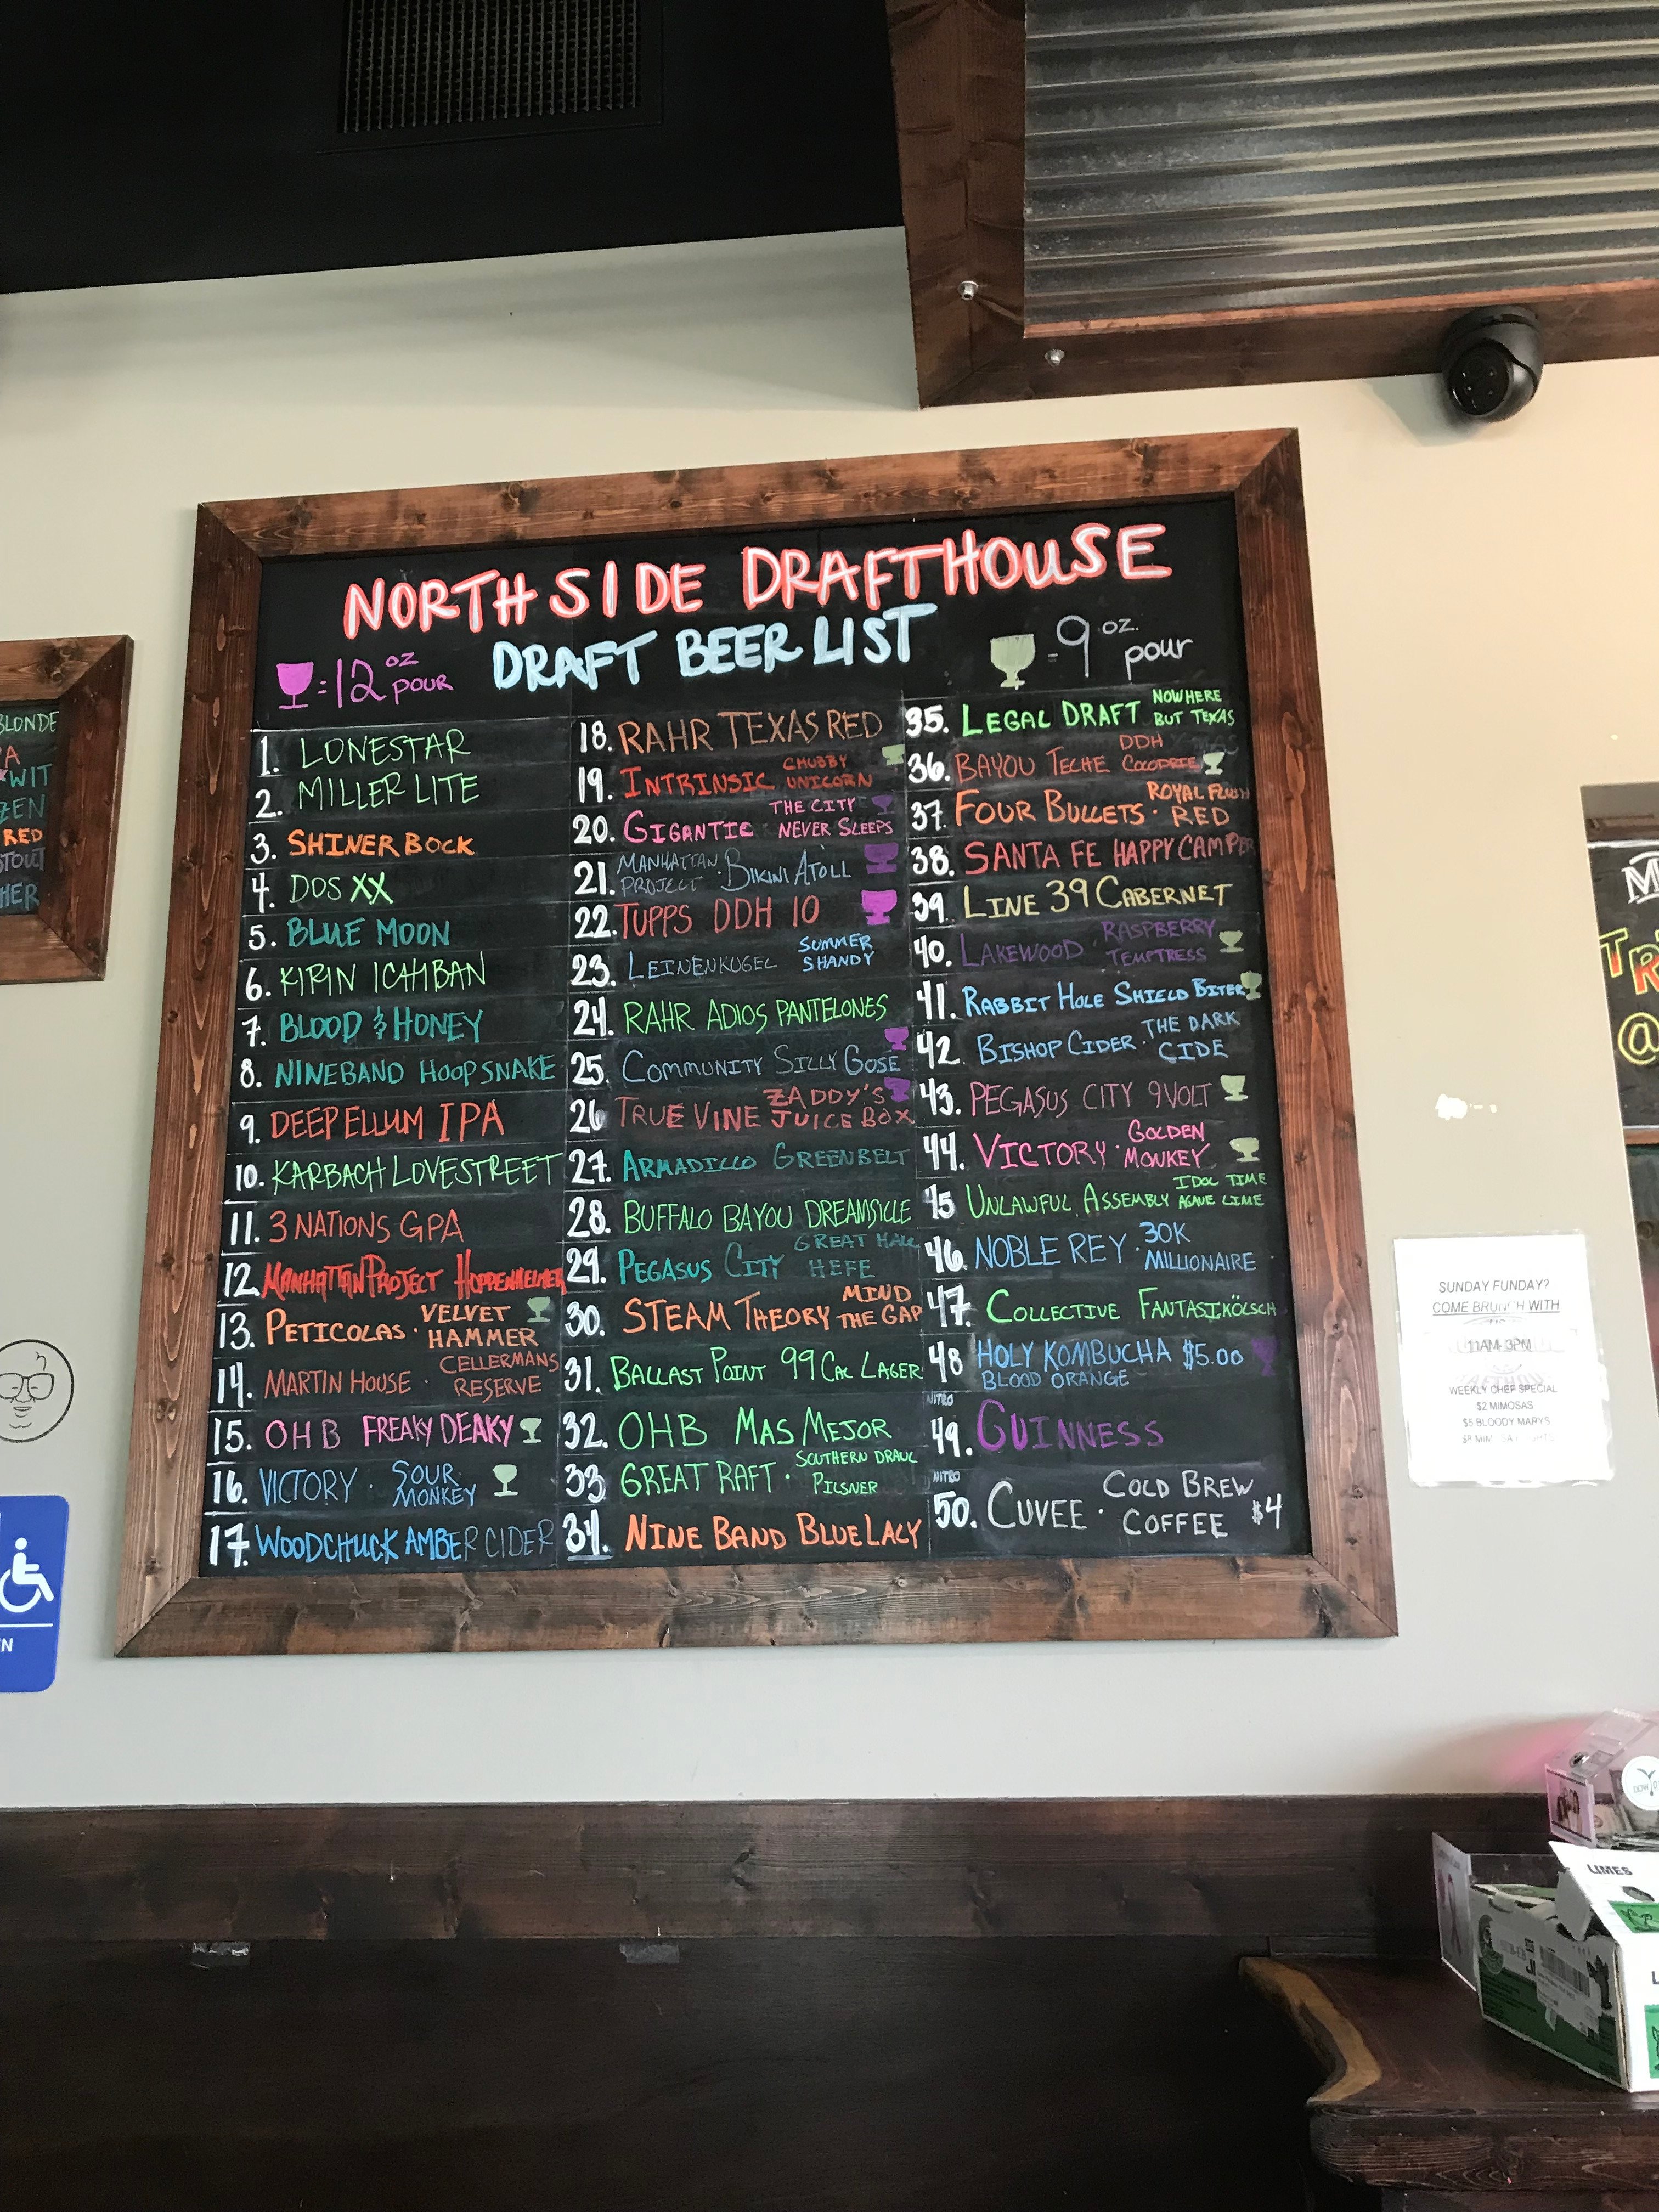 NORTH SIDE DRAFTHOUSE
DRAFT BEER LIST
=12 OZ POUR
-9 OZ. pour
1. LONESTAR
2. MILLER LITE
3. SHINER BOCK
4. DOS XX
5. BLUE MOON
6. KIRIN ICHIBAN
7. BLOOD & HONEY
8. NINEBAND HOOPSNAKE
9. DEEP ELLUM IPA
10. KARBACH LOVESTREET
11. 3 NATIONS GPA
12. MANHATTAN PROJECT HOPPENHEIMER
13. PETICOLAS · VELVET HAMMER
14. MARTIN HOUSE · CELLERMANS RESERVE
15. OHB FREAKY DEAKY
16. VICTORY · SOUR MONKEY
17. WOODCHUCK AMBER CIDER
18. RAHR TEXAS RED
19. INTRINSIC CHUBBY UNICORN
20. GIGANTIC THE CITY NEVER SLEEPS
21. MANHATTAN PROJECT · BIKINI ATOLL
22. TUPPS DDH 10
23. LEINENKUGEL SUMMER SHANDY
24. RAHR ADIOS PANTELONES
25. COMMUNITY SILLY GOSE
26 TRUE VINE ZADDY'S JUICE BOX
27. ARMADILLO GREENBELT
28. BUFFALO BAYOU DREAMSICLE
29. PEGASUS CITY GREAT HALL HEFE
30. STEAM THEORY MIND THE GAP
31. BALLAST POINT 99 CAL LAGER
32. OHB MAS MEJOR
33 GREAT RAFT · SOUTHERN DRAWL PILSNER
34. NINE BAND BLUE LACY
35. LEGAL DRAFT NOWHERE BUT TEXAS
36. BAYOU TECHE DDH COCODRIE
37. FOUR BULLETS · ROYAL FLUSH RED
38. SANTA FE HAPPY CAMPER
39. LINE 39 CABERNET
40. LAKEWOOD · RASPBERRY TEMPTRESS
41. RABBIT HOLE SHIELD BITER
42. BISHOP CIDER · THE DARK CIDE
43. PEGASUS CITY 9VOLT
44. VICTORY · GOLDEN MONKEY
45 UNLAWFUL ASSEMBLY IDOL TIME AGAVE LIME
46. NOBLE REY · 30K MILLIONAIRE
47. COLLECTIVE FANTASIKÖLSCH
48 HOLY KOMBUCHA $5.00
BLOOD ORANGE
NITRO
49. GUINNESS
NITRO
50. CUVEE · COLD BREW COFFEE $4
BLONDE
WIT
RED
STOUT
HER
@
SUNDAY FUNDAY?
COME BRUNCH WITH
11AM-3PM
WEEKLY CHEF SPECIAL
$2 MIMOSAS
$5 BLOODY MARYS
LIMES